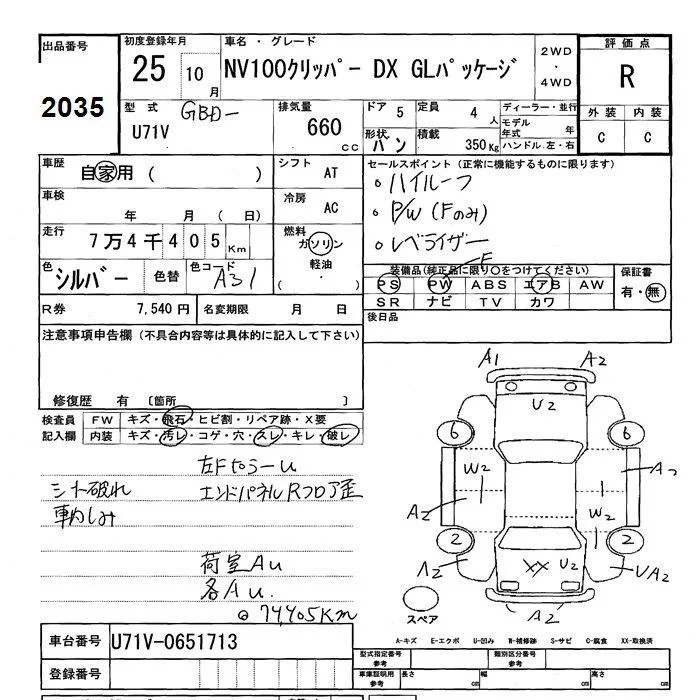 出品番号
2035
初度登録年月
25 10 月
車名 ・ グレード
NV100クリッパー DX GLパッケージ
2WD
・
4WD
評価点
R
外装 内装
C C
型式
GBD-
U71V
排気量
660
cc
ドア 5
定員 4 人
形状 バン
積載 350Kg
ディーラー・並行
モデル
年式 年
ハンドル 左・右
車歴
自家用 ( )
シフト
AT
車検
年 月 ( 日)
冷房
AC
走行
7万4千405 Km
燃料
ガソリン
軽油
・
( )
色
シルバー
色替
色コード
A31
R券
7,540 円
名変期限 月 日
セールスポイント (正常に機能するものに限ります)
・ハイルーフ
・P/W (Fのみ)
・レベライザー
F
装備品(純正品に限り○をつけてください)
PS PW ABS エアB AW
SR ナビ TV カワ
保証書
有・無
後日品
注意事項申告欄 (不具合内容等は具体的に記入して下さい)
修復歴 有 〔箇所 〕
検査員
記入欄
FW キズ・飛石・ヒビ割・リペア跡・X要
内装 キズ・汚レ・コゲ・穴・スレ・キレ・破レ
シート破れ
車内しみ
エンドパネル Rフロア歪
荷室 A u
各 A u.
74,405Km
A1 A2
U2
6 6
W2
A2
A2
W2
2 2
A2
XX U2
UA2
A2
スペア
A-キズ E-エクボ U-凹み W-補修跡 S-サビ C-腐食 XX-取換済
車台番号
U71V-0651713
登録番号
型式指定番号
参考
類別区分番号
参考
車庫証明用
参考
長さ cm
幅 cm
高さ cm